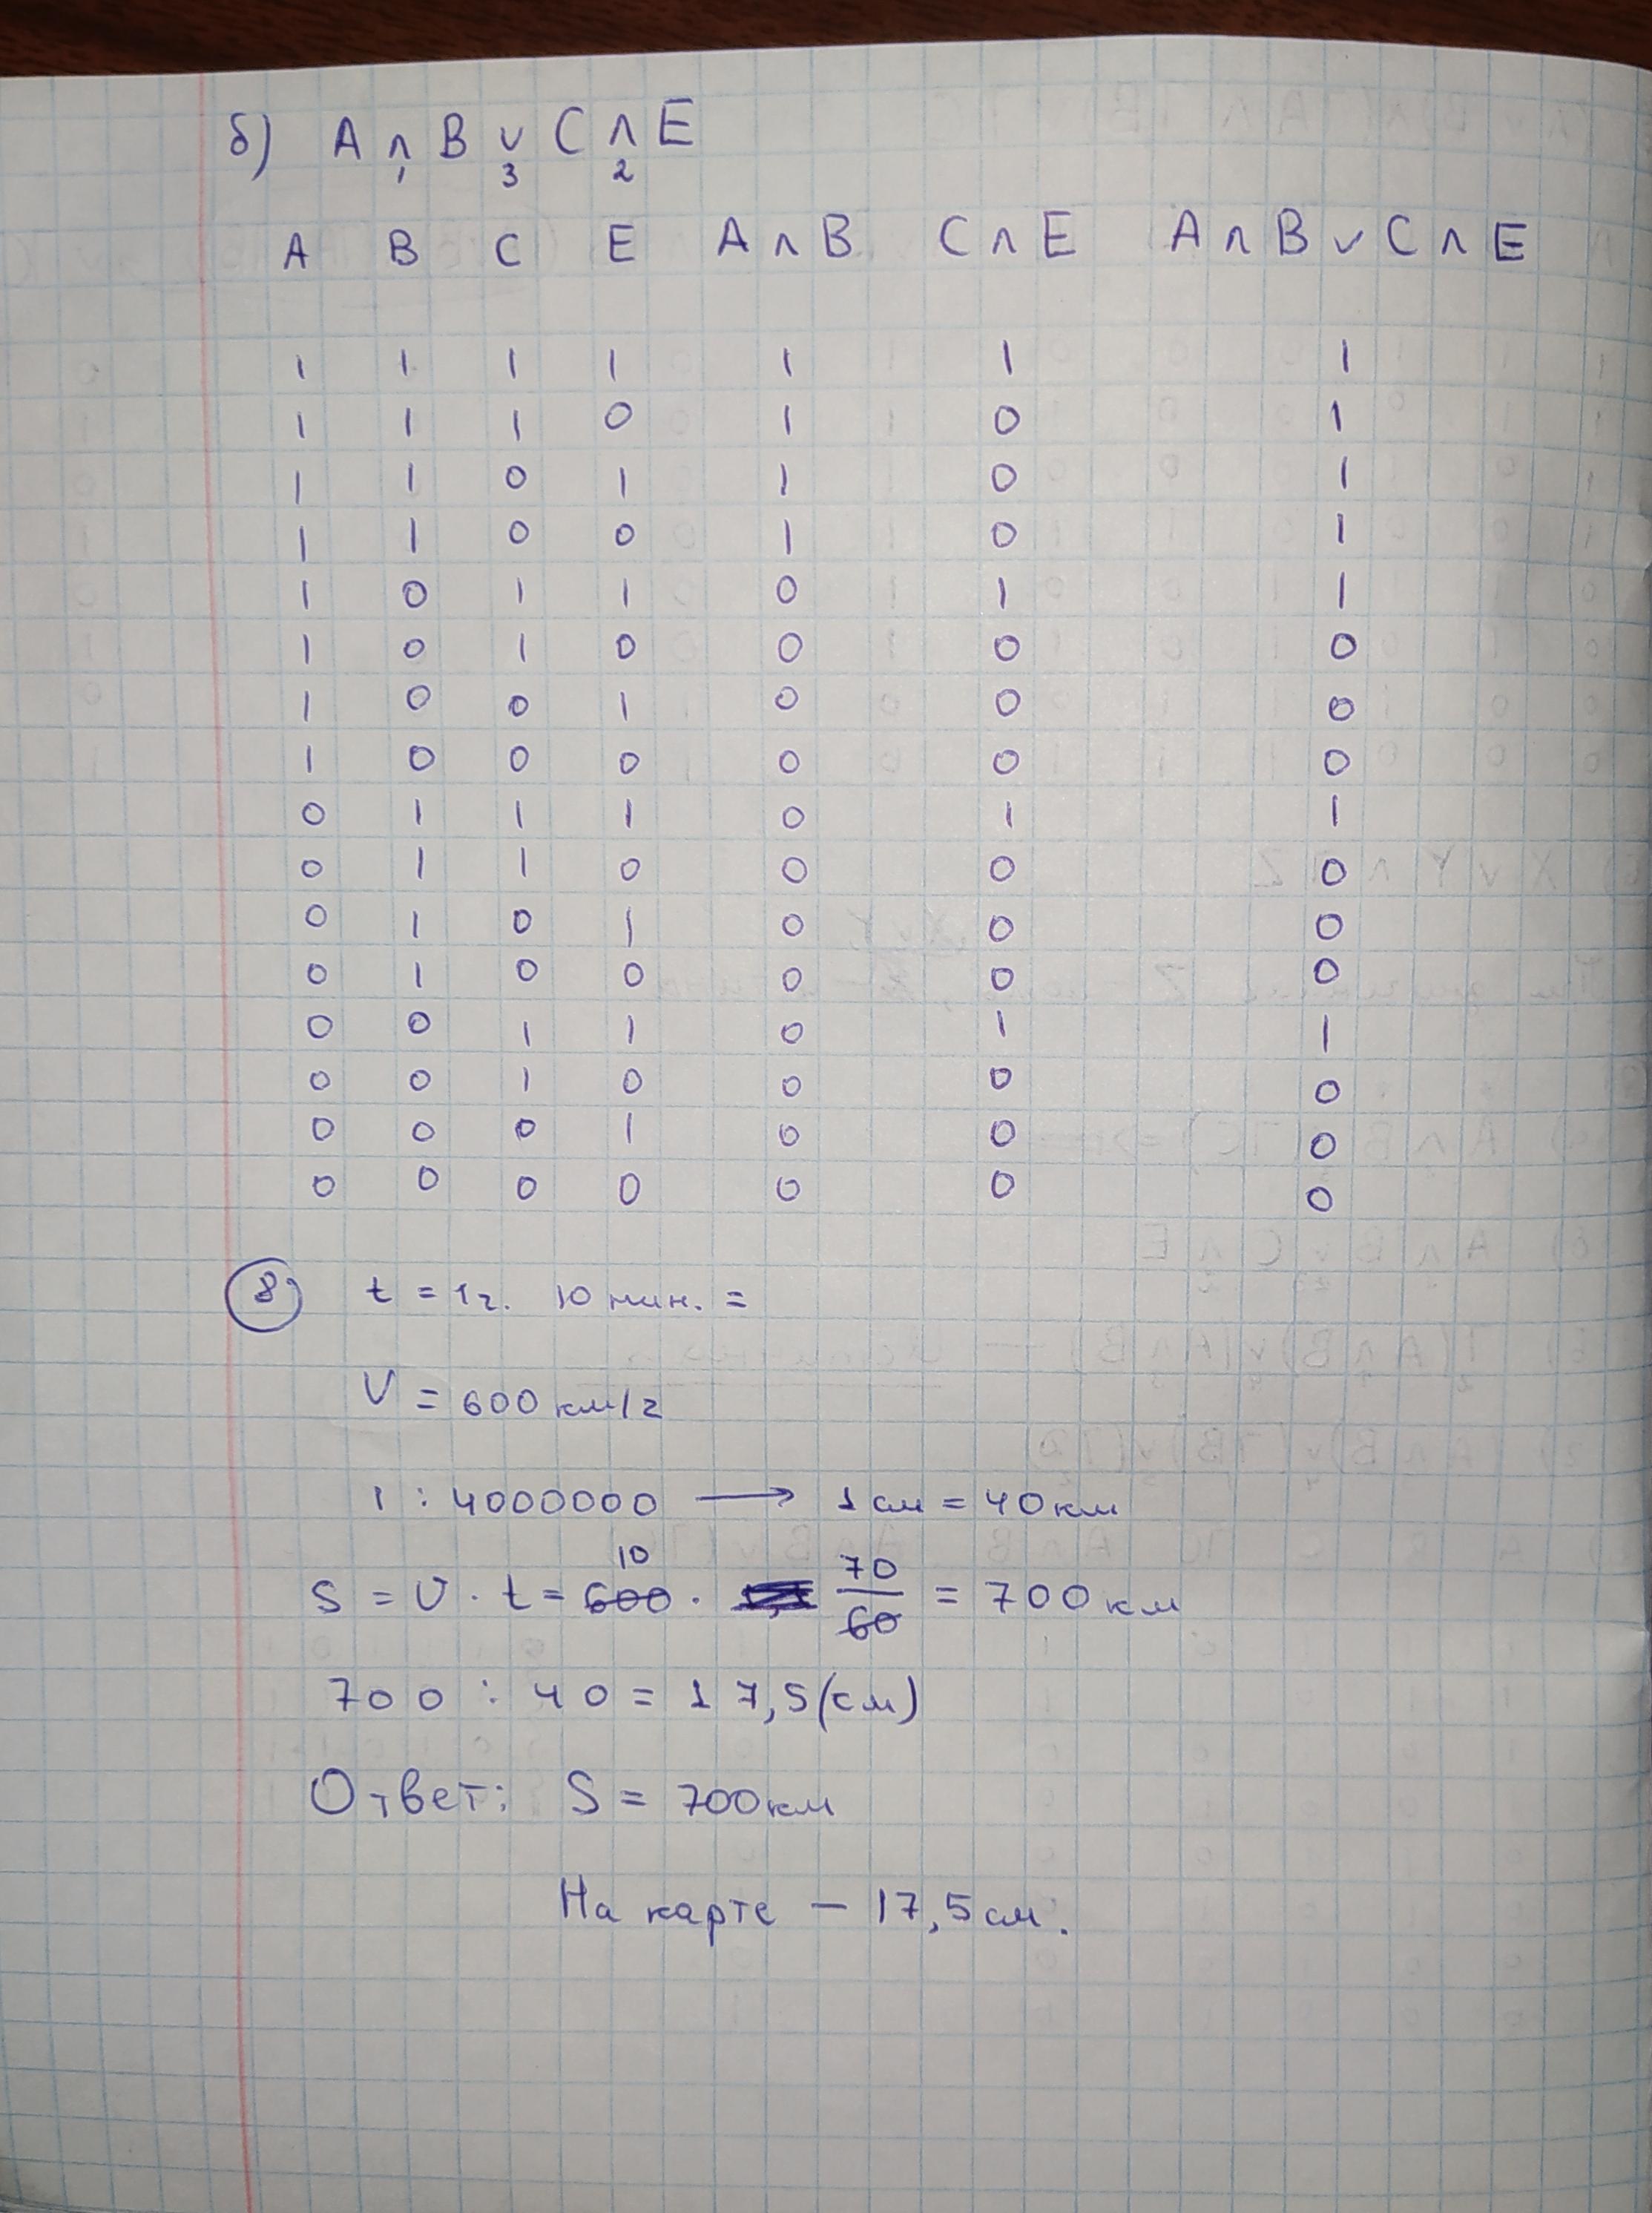 б) A ∧ B ∨ C ∧ E
1 3 2
A B C E A ∧ B C ∧ E A ∧ B ∨ C ∧ E
1 1 1 1 1 1 1
1 1 1 0 1 0 1
1 1 0 1 1 0 1
1 1 0 0 1 0 1
1 0 1 1 0 1 1
1 0 1 0 0 0 0
1 0 0 1 0 0 0
1 0 0 0 0 0 0
0 1 1 1 0 1 1
0 1 1 0 0 0 0
0 1 0 1 0 0 0
0 1 0 0 0 0 0
0 0 1 1 0 1 1
0 0 1 0 0 0 0
0 0 0 1 0 0 0
0 0 0 0 0 0 0
8 t = 1 г. 10 мин. =
V = 600 км/г
1 : 4000000 → 1 см = 40 км
10
S = V · t = 600 · 70/60 = 700 км
700 : 40 = 17,5 (см)
Ответ: S = 700 км
На карте — 17,5 см.